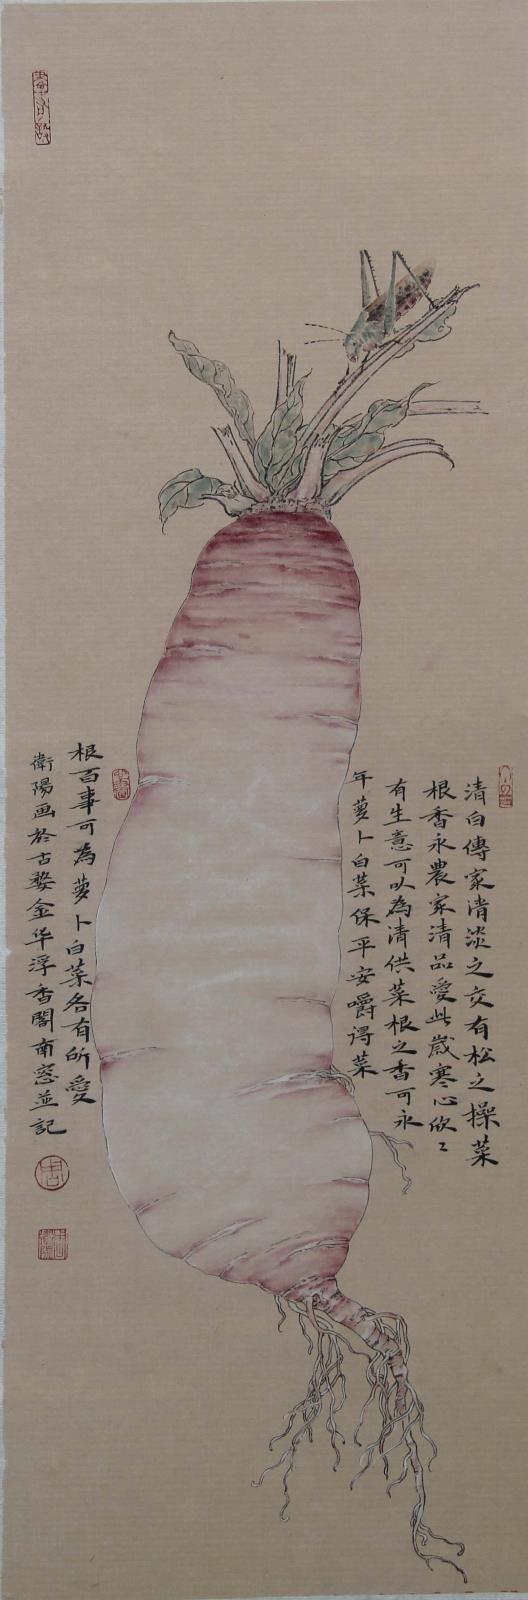 清白傳家清淡之交有松之操菜
根香永農家清品愛此歲寒心欣〻
有生意可以為清供菜根之香可永
年蘿卜白菜保平安嚼得菜
根百事可為蘿卜白菜各有所愛
衛陽画於古婺金华浮香閣南窓並記